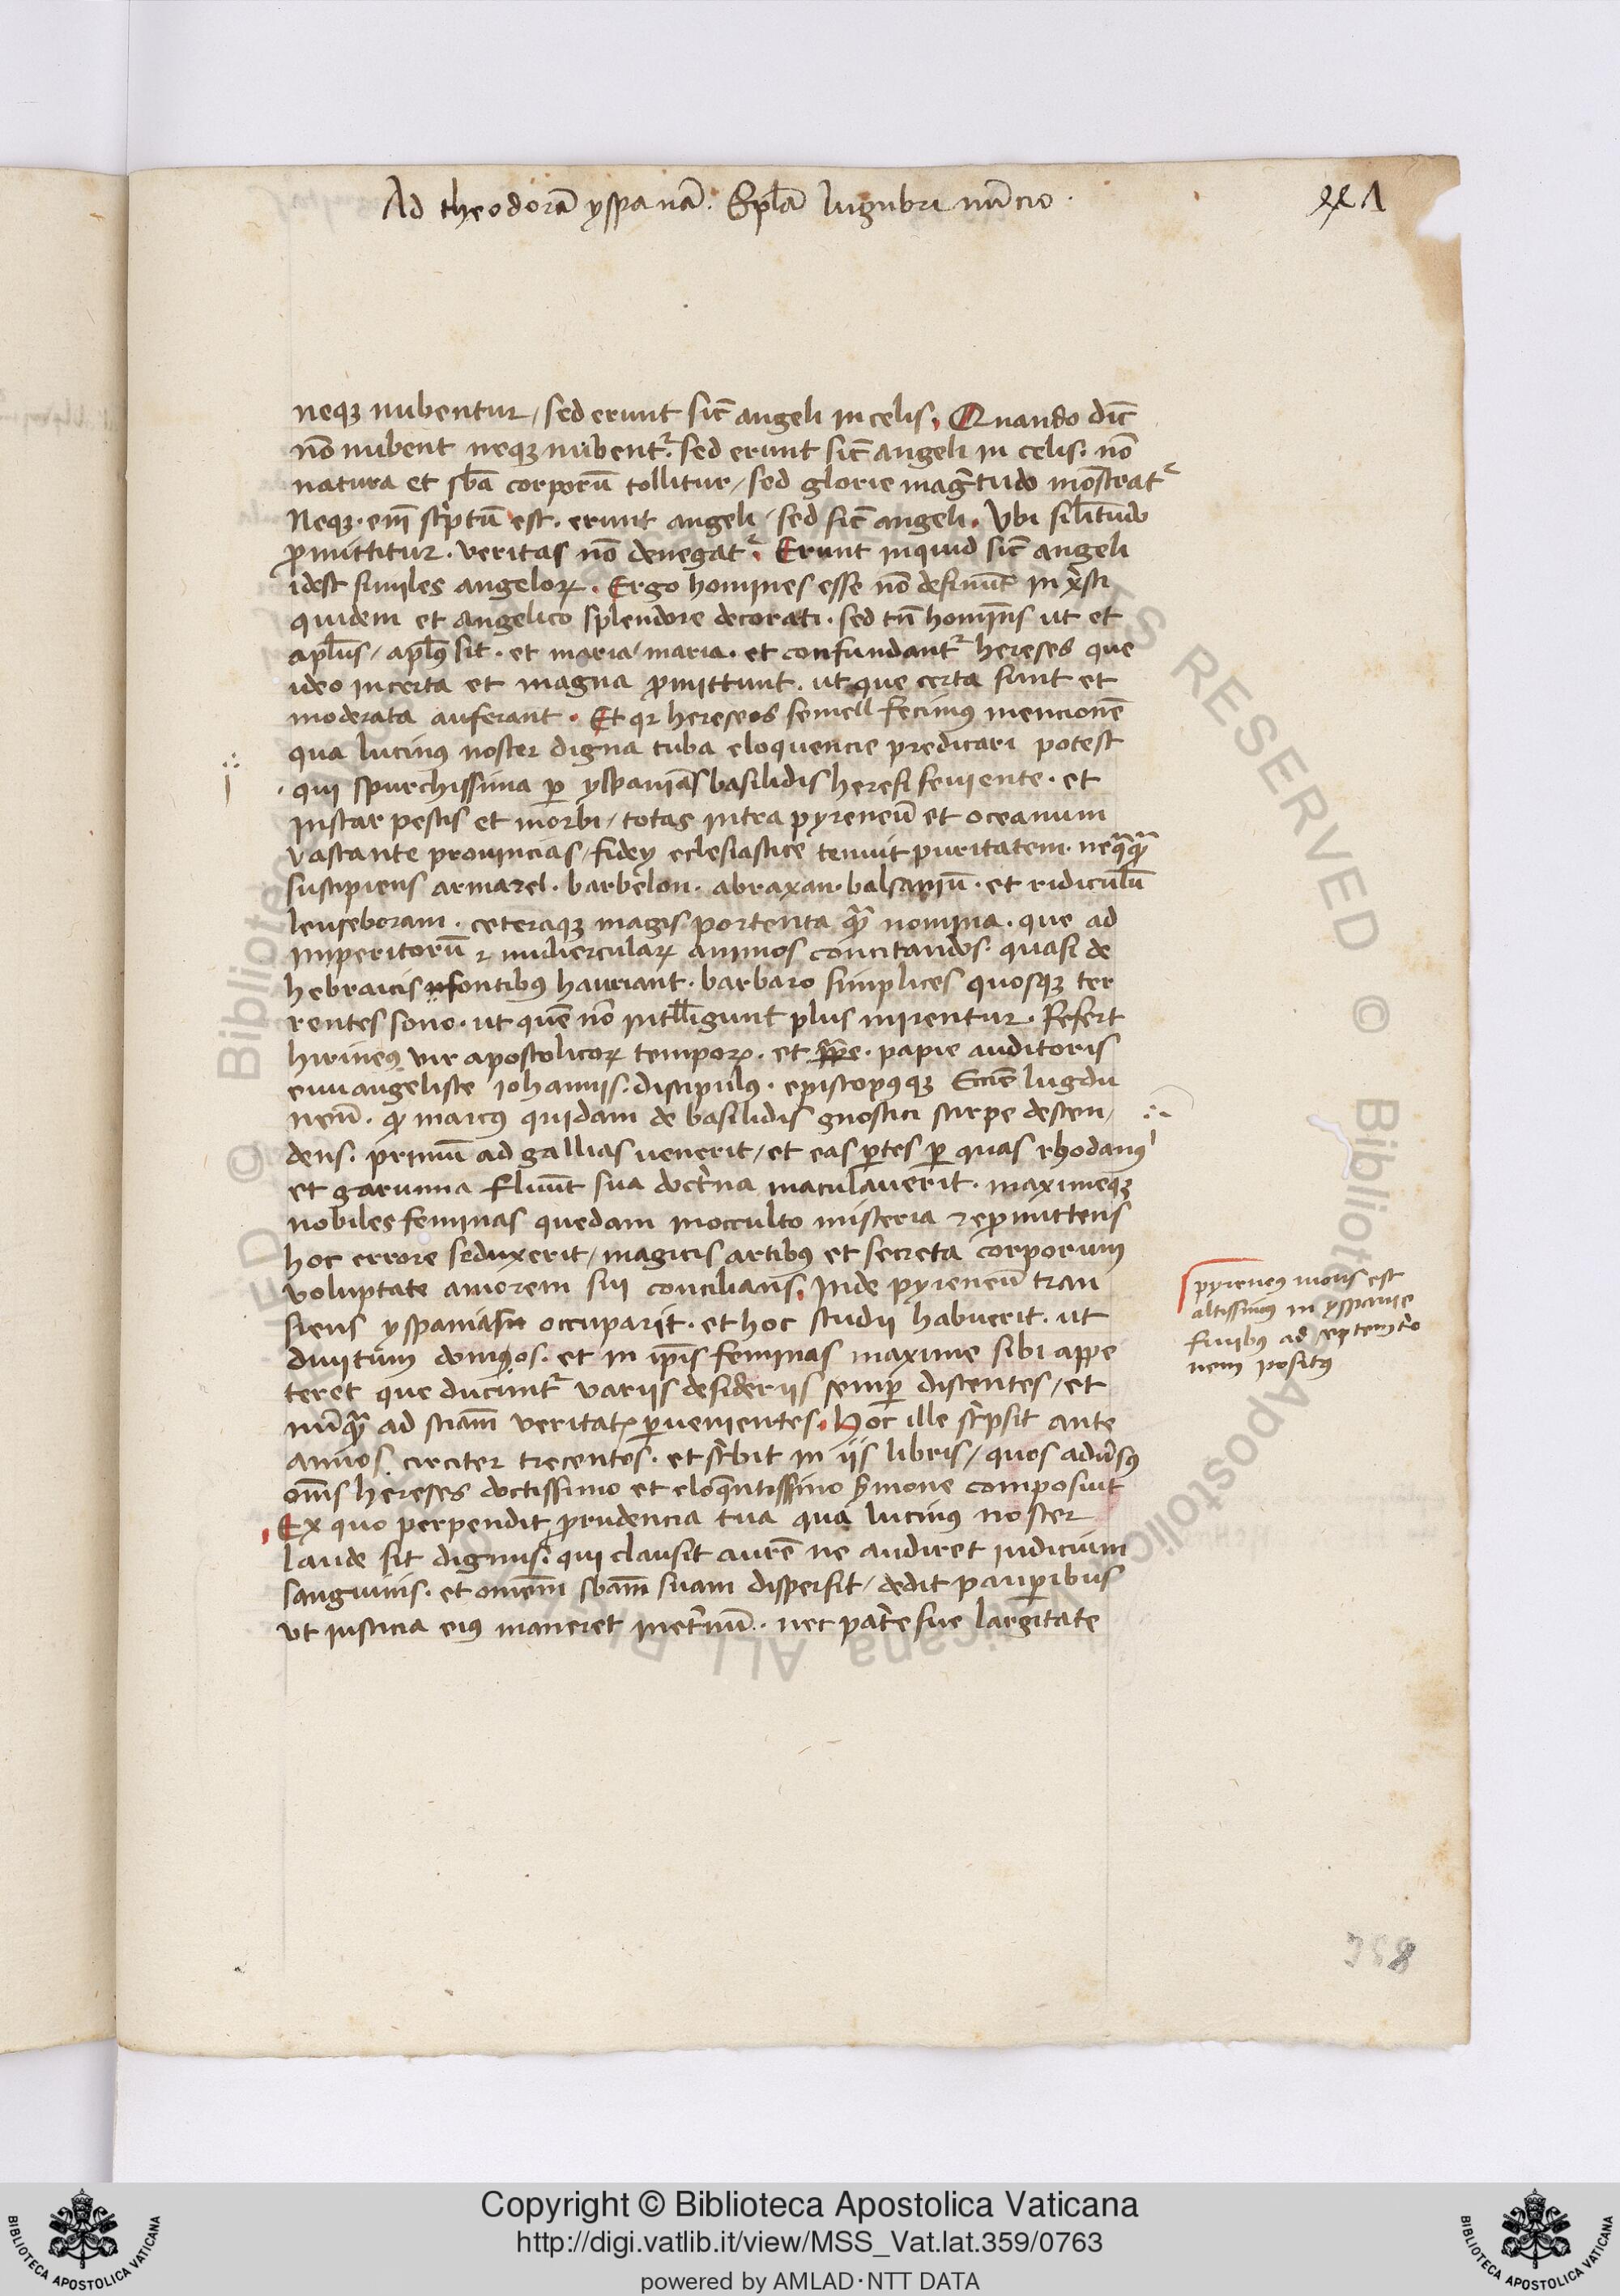 Ad theodorā yspanā. Epl̄a lugubri nūcio.
xx1
neqꝫ nubentur / sed erunt sic̄ angeli in celis. Quando dic̄
nō nubent neqꝫ nubent᷑. sed erunt sic̄ angeli in celis. nō
natura et sb̄a corporū tollitur / sed glorie magnitudo mōstrat᷑
Neqꝫ. em̄ scriptū est. erunt angeli / sed sic̄ angeli. Vbi silitudo
ꝓmittitur. veritas nō denegat᷑. Erunt inquid sic̄ angeli
idest similes angeloꝝ. Ergo homines esse nō desinūt
quidem et angelico splendore decorati. sed tn̄ homīes ut et
apl̄us / apl̄us sit. et maria / maria. et confundant᷑ hereses que
ideo incerta et magna ꝓmittunt. ut que certa sunt et
moderata auferant. Et qr hereseos semell fecimꝰ mencionē
qua lucinꝰ noster digna tuba eloquencie predicari potest
qui spurchissima ꝑ yspaniās basilidis heresi seuiente. et
instar pestis et morbi / totas intra pyreneū et oceanum
vastante prouincias / fidey eclesiastice tenuit puritatem. neqͣqͣꝫ
suscipiens armazel. barbelon. abraxan. balsamū. et ridiculū
leuseboram. ceteraqꝫ magis portenta qͣꝫ nomina. que ad
imperitorū ⁊ muliercularꝝ animos concitandos. quasi de
hebraicis fontibꝰ hauriant. barbaro simplices quosqꝫ ter
rentes sono. ut quē nō intll̄igunt plus mirentur. Refert
hirineꝰ vir apostolicoꝝ temporꝝ. et papie auditoris
euuangeliste iohannis. discipulus. episcopꝰqꝫ Eccīe lugdu
nen̄. ꝙ marcꝰ quidam de basilidis gnostici stirpe descen /
dens. primū ad gallias uenerit / et eas ꝑtes ꝑ quas rhodanꝰ
et garunna fluūt sua doctrina maculauerit. maximeqꝫ
nobiles feminas quedam inocculto misteria reꝓmittens
hoc errore seduxerit / magicis artibꝰ et secreta corporum
voluptate amorem sui concilians. Inde pyreneū tran
siens yspanias occuparit. et hoc studii habuerit. ut
diuitum domos. et in ip̄is feminas maxime sibi appe
teret que ducunt᷑ variis desideriis semꝑ discentes / et
nūqͣꝫ ad sciam̄ veritatꝭ ꝑuenientes. Hoc ille scripsit ante
annos circiter trecentos. et scribit in iis libris / quos aduersꝰ
om̄s hereses doctissimo et eloquentissimo sermone composuit
Ex quo perpendit prudencia tua qua lucinꝰ noster
laude sit dignus. qui clausit aurē ne audiret iudicium
sanguinis. et omēm sbam̄ suam dispersit / dedit pauꝑibus
vt iusticia eius maneret inet̄nū. nec patrie sue largitate
pyreneꝰ mons est
altissimꝰ in yspanie
finibꝰ ad septemtrio
nem positꝰ
358
Copyright © Biblioteca Apostolica Vaticana
http://digi.vatlib.it/view/MSS_Vat.lat.359/0763
powered by AMLAD·NTT DATA
BIBLIOTECA APOSTOLICA VATICANA
BIBLIOTECA APOSTOLICA VATICANA